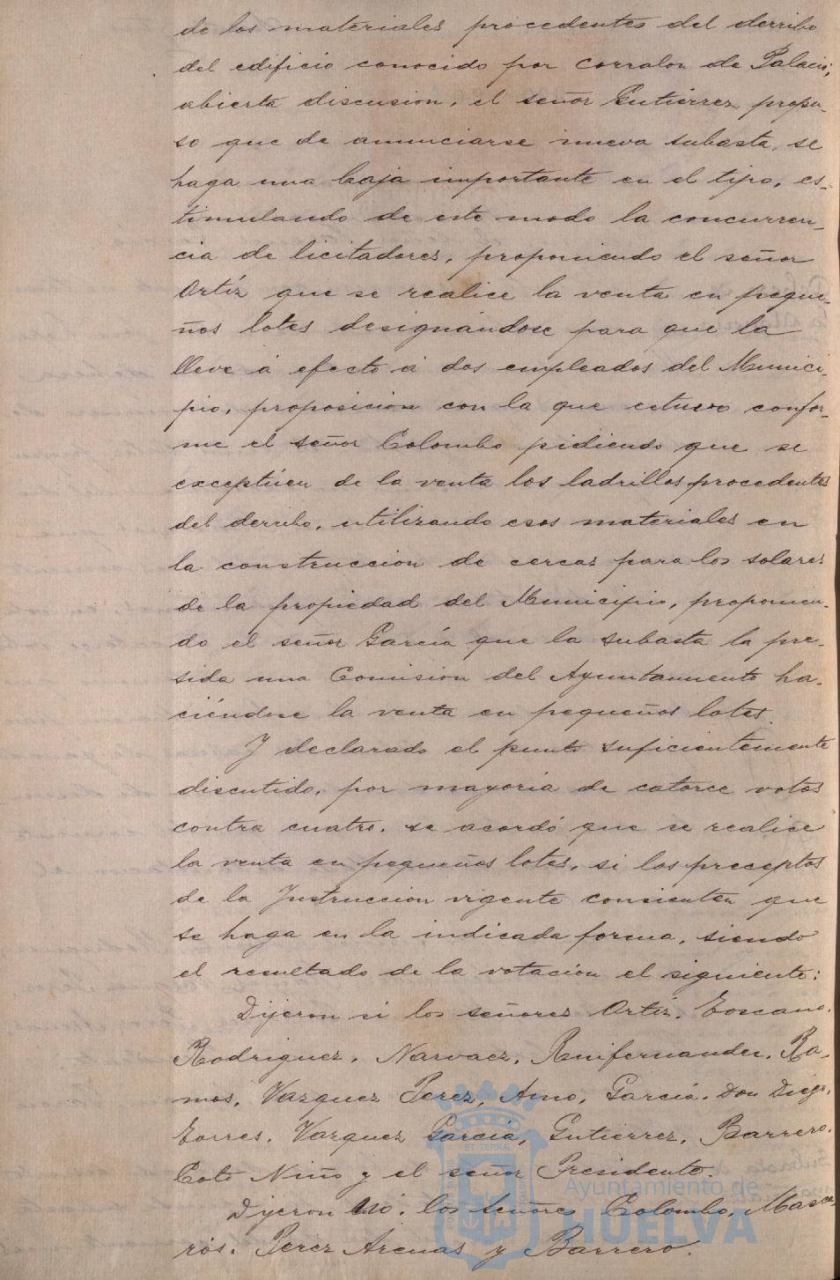 de los materiales procedentes del derribo
del edificio conocido por Corralon de Palacio,
abierta discusion, el señor Gutierrez propu-
so que de anunciarse nueva subasta, se
haga una baja importante en el tipo, es-
timulando de este modo la concurren-
cia de licitadores, proponiendo el señor
Ortíz que se realice la venta en peque-
ños lotes designándose para que la
lleve á efecto á dos empleados del Munici-
pio, proposicion con la que estuvo confor-
me el señor Colombo pidiendo que se
exceptúen de la venta los ladrillos procedentes
del derribo, utilizando esos materiales en
la construccion de cercas para los solares
de la propiedad del Municipio, proponien-
do el señor García que la subasta la pre-
sida una Comision del Ayuntamiento ha-
ciéndose la venta en pequeños lotes.
Y declarado el punto suficientemente
discutido, por mayoría de catorce votos
contra cuatro, se acordó que se realice
la venta en pequeños lotes, si los preceptos
de la Instruccion vigente consienten que
se haga en la indicada forma, siendo
el resultado de la votacion el siguiente:
Dijeron si los señores Ortíz, Toscano,
Rodriguez, Narvaez, Ruifernandez, Ra-
mos, Vazquez Perez, Amo, García, Don Diego,
Torres, Vazquez García, Gutierrez, Barrero,
Coto Niño y el señor Presidente.
Dijeron no: los señores Colombo, Masca-
rós, Perez Arenas y Barrero.
Ayuntamiento de
HUELVA